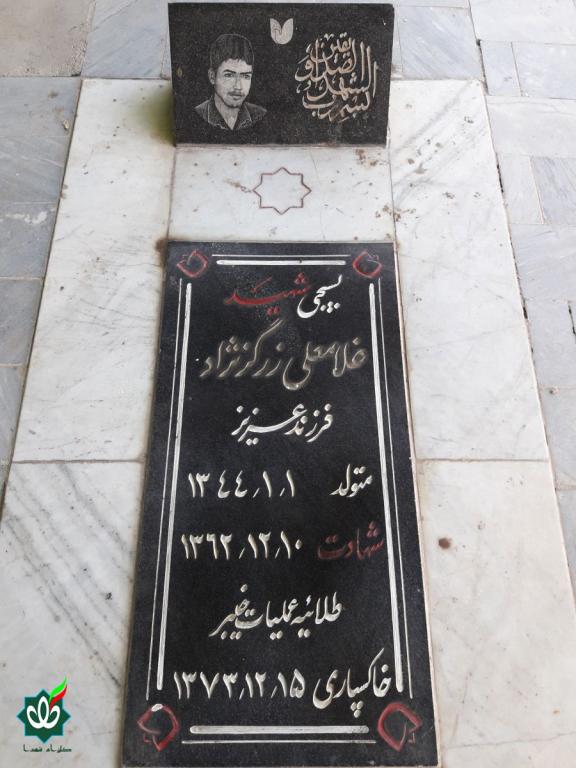 السلام علیک
بسیجی شهید
غلامعلی زرگرنژاد
فرزند عزیز
متولد ۱٫۱٫۱۳۴۴
شهادت ۱۰٫۱۲٫۱۳۶۲
طلائیه عملیات خیبر
خاکسپاری ۱۵٫۱۲٫۱۳۷۳
گلزار شهدا